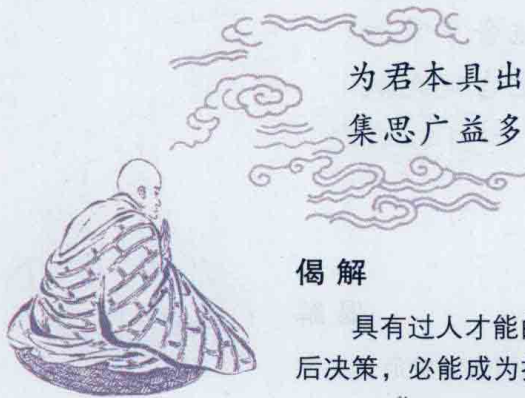 为君本具出
集思广益多
偈解
具有过人才能
后决策，必能成为